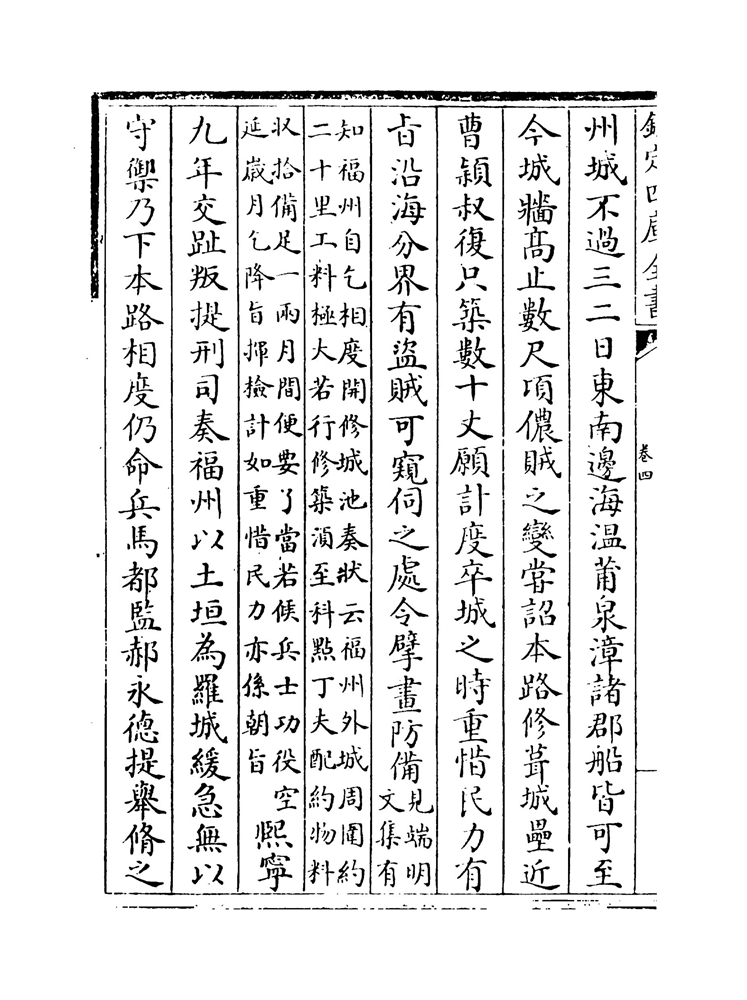 欽定四庫全書
卷四
州城不過三二日東南邊海温莆泉漳諸郡船皆可至
今城牆髙止數尺項儂賊之變嘗詔本路修葺城壘近
曹頴叔復只築數十丈願計度卒城之時重惜民力有
㫖沿海分界有盜賊可窺伺之處令擘畫防備見端明
文集有
知福州自乞相度開修城池奏狀云福州外城周圍約
二十里工料極大若行修築須至科㸃丁夫配約物料
収拾備足一兩月間便要了當若候兵士功役空
延歳月乞降旨揮檢計如重惜民力亦係朝旨
熙寧
九年交趾叛提刑司奏福州以土垣為羅城緩急無以
守禦乃下本路相度仍命兵馬都監郝永德提舉脩之